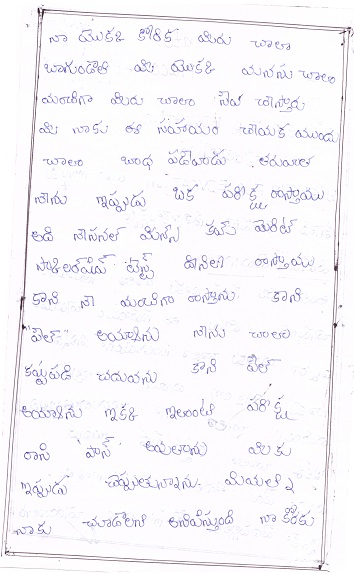 నా యొకకి కోరిక మిరు చాలా
బాగుండాలి మి యొకకి మనసు చాలా
మంచిగా మిరు చాలా సేవ చేస్తారు
మి నాకు ఈ సహాయం చేయక ముందు
చాలా బంధ పడేవాడు తరువాత
నేను ఇప్పుడు ఒక పరిక్ష రాస్తాము
అది నేసనల్ మిన్స్ కమ్ మెరిట్
స్కాలర్‌షిప్ టెస్ట్ దినిలో రాస్తాము
కాని నే మంచిగా రాస్తాను కాని
"పెల్" అయాను నేను చాలా
కష్టపడి చదువను కాని పెల్
అయాను ఇకకి ఇలాంటి పరిక్ష
రాసి 'పాస్' అవుతాను మికు
ఇప్పుడు చెప్పుతున్నాను. మిమల్ని
నాకు చూడాలని అనిపిస్తుంది నా కొరకు